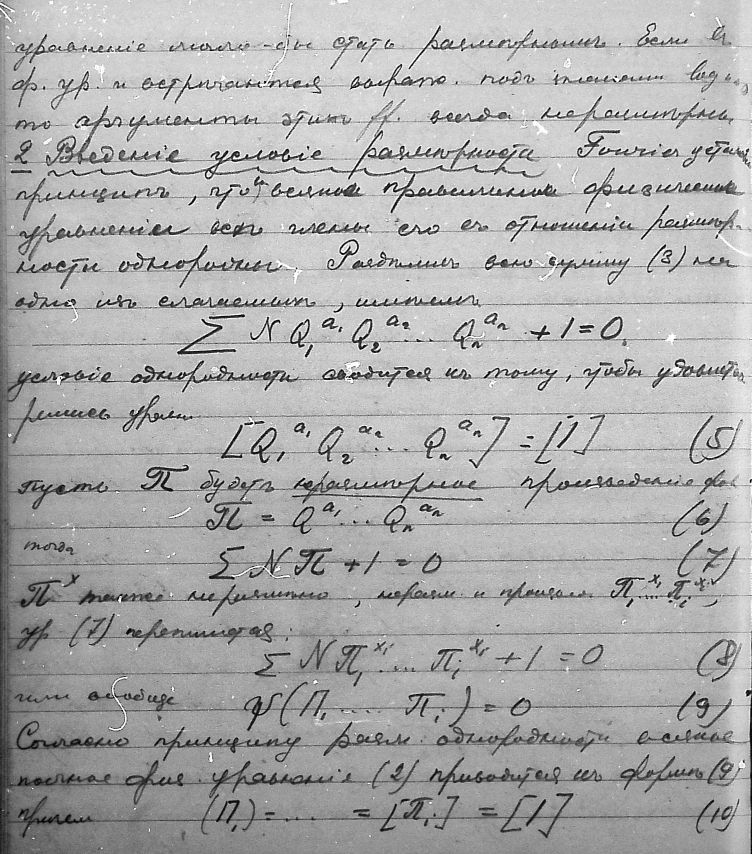 уравненіе могло-бы стать размѣрнымъ. Если въ
ф. ур. и встрѣчаются выраж. подъ знаками log
то аргументы этихъ ff. всегда неразмѣрны.
2 Введеніе условіе размѣрности Fourier
принципъ, что всякое правильное физическое
уравненіи всѣ члены его въ отношеніи размѣр-
ности однородны. Раздѣлимъ всю сумму (3) на
одно изъ слагаемыхъ, имѣемъ
∑ N Q₁^a₁ Q₂^a₂ ... Qₙ^aₙ + 1 = 0.
условіе однородности сводится къ тому, чтобы удовлетво
рялись уравн.
[Q₁^a₁ Q₂^a₂ ... Qₙ^aₙ] = [1] (5)
пусть П будетъ неразмѣрное произведеніе
П = Q^a₁ ... Qₙ^aₙ (6)
тогда
∑ N П + 1 = 0 (7)
П^x также , неразм и произвед. П₁^x₁ ... Пᵢ^xᵢ,
ур (7) перепишется:
∑ N П₁^x₁ ... Пᵢ^xᵢ + 1 = 0 (8)
или вообще ψ(П₁ .... Пᵢ) = 0 (9)
Согласно принципу разм. однородности всякое
полное физ. уравненіе (2) приводится къ формѣ (9)
причем (П₁) = ... = [Пᵢ] = [1] (10)